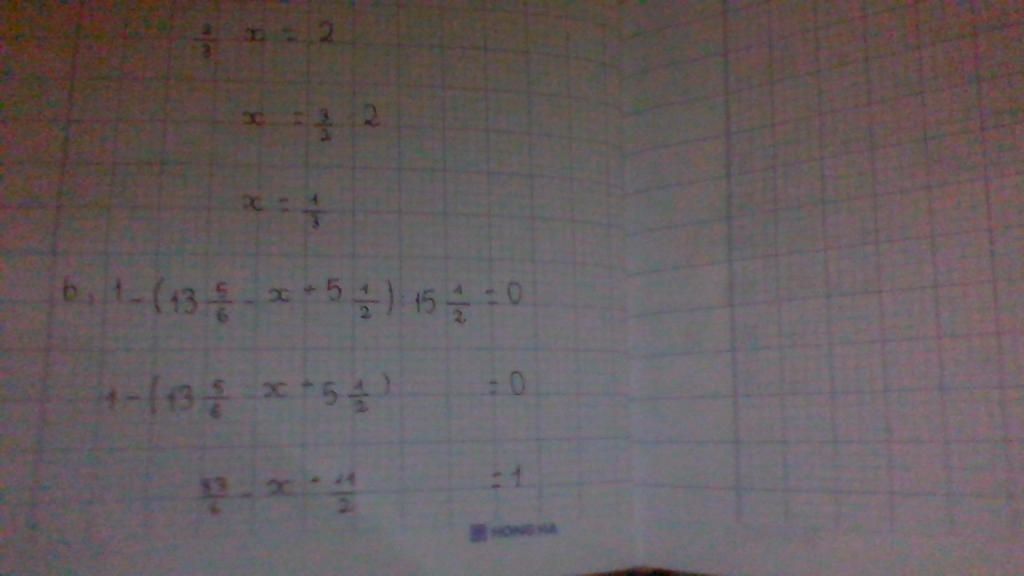 x = 2
x = 3/2 2
x = 1/3
b, 1 - (13 5/6 - x + 5 1/2) . 15 1/2 = 0
1 - (13 5/6 - x + 5 1/2) = 0
- x + 11/2 = 1
HONG HA